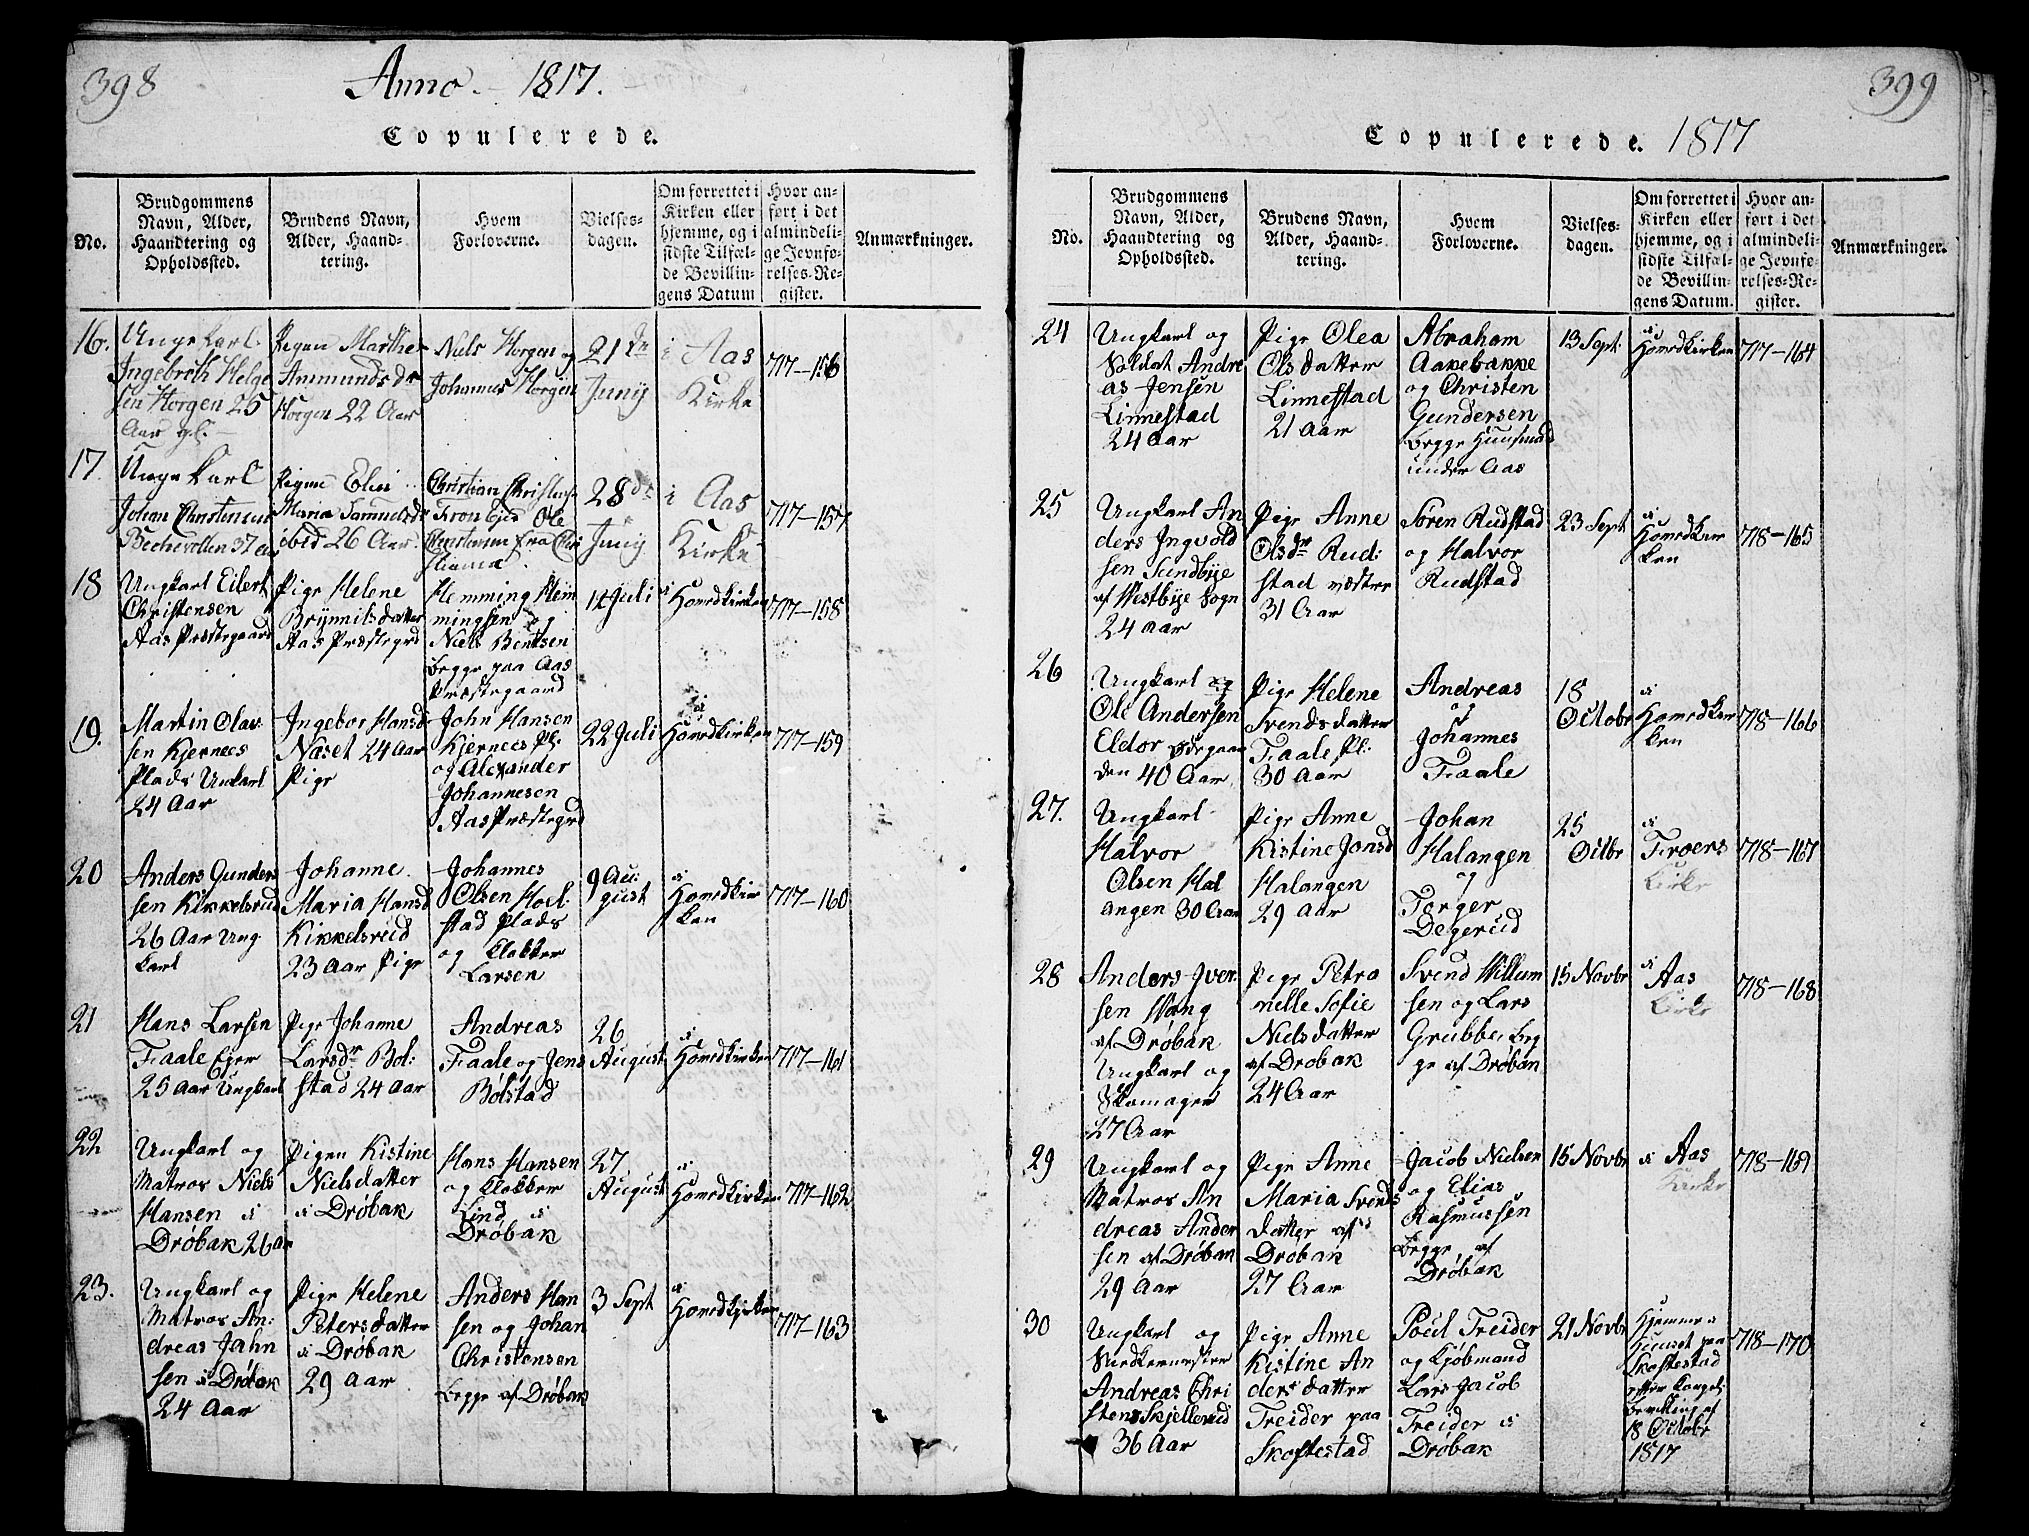 398
Anno 1817.
Copulerede.
No.
Brudgommens
Navn, Alder,
Haandtering og
Opholdssted.
Brudens Navn,
Alder, Haand-
tering.
Hvem
Forloverne.
Vielses-
dagen.
Om forrettet i
Kirken eller
hjemme, og i
sidste Tilfæl-
de Bevillin-
gens Datum
Hvor an-
ført i det
almindeli-
ge Jevnfø-
relses-Re-
gister.
Anmærkninger.
16.
Unge Karl
Ingebreth Helge
sen Horgen 25
Aar gl.
Pigen Marthe
Anmundsdr
Horgen 22 Aar
Niels Horgen og
Johannes Horgen
21de
Junij
i Aas
Kirke
717-156
17.
Unge Karl
Johan Christensen
37
Pigen Elen
Maria Samuelsdr
ibid 26 Aar
Christian Christens
Ole
28de
Junij
i Aas
Kirke
717-157
18
Ungkarl Eilert
Christensen
Aas Præstegaard
Pige Helene
Brynnilsdatter
Aas Præstegrd
Hemming Hem
mingsen og
Niels Bentsen
begge paa Aas
Præstegaard
14 Juli
i
Hovedkirken
717-158
19.
Martin Olav
sen Kjernees
Plads Unkarl
24 Aar
Ingebor Hansd
Næset 24 Aar
Pige
John Hansen
Kjernees Pl:
og Alexander
Johannesen
Aas Præstegrd
22 Juli
i
Hovedkirken
717-159
20
Anders Gunders
sen Kikkelsrud
26 Aar Ung
karl
Johanne
Maria Hansd
Kikkelsrud
23 Aar Pige
Johannes
Olsen Hol
stad Plads
og Klokker
Larsen
9 Au
gust
i
Hovedkir
ken
717-160
21
Hans Larsen
Faale Ejer
25 Aar Ungkarl
Pige Johanne
Larsdr Bøl:
stad 24 Aar
Andreas
Faale og Jens
Bølstad
26
August
i
Hovedkirken
717-161
22
Ungkarl og
Matros Niels
Hansen i
Drøbak 26 aar
Pigen Kistine
Nielsdatter
i Drøbak
Hans Hansen
og Klokker
Lind i
Drøbak
27
August
i
Hovedkirken
717-162
23.
Ungkarl og
Matros An:
dreas Jahn
sen i Drøbak
24 Aar
Pige Helene
Petersdatter
i Drøbak
29 Aar
Anders Han
sen og Johan
Christensen
begge af Drøbak
3 Sept
i
Hovedkirken
717-163
399
Copulerede. 1817
No.
Brudgommens
Navn, Alder,
Haandtering og
Opholdssted.
Brudens Navn,
Alder, Haand-
tering.
Hvem
Forloverne.
Vielses-
dagen.
Om forrettet i
Kirken eller
hjemme, og i
sidste Tilfæl-
de Bevillin-
gens Datum.
Hvor an-
ført i det
almindeli-
ge Jevnfø-
relses-Re-
gister.
Anmærkninger.
24
Ungkarl og
Soldat Andre
as Jensen
Linnestad
24 Aar
Pige Olea
Olsdatter
Linnestad
21 Aar
Abraham
Aakebakke
og Christen
Gundersen
begge Huusmd
under Aas
13 Sept
i
Hovedkirken
717-164
25
Ungkarl An
ders Ingvold
sen Sundbye
af Westbye Sogn
24 Aar
Pige Anne
Olsdr Rud:
stad vestre
31 Aar
Søren Rudstad
og Halvor
Rudstad
23 Sept
i
Hovedkir
ken
718-165
26
Ungkarl og
Ole Andersen
Eldor ødegaar
den 40 Aar
Pige Helene
Svendsdatter
Faale Pl:
30 Aar
Andreas
og
Johannes
Faale
18
Octobr
i
Hovedkir
ken
718-166
27.
Ungkarl
Halvor
Olsen Hal
angen 30 Aar
Pige Anne
Kistine Jonsd
Halangen
29 Aar
Johan
Halangen
og
Torger
Degerud
25
Octbr
i
Froens
Kirke
718-167
28
Anders Iver
sen Wang
af Drøbak
Ungkarl og
Skomager
27 Aar
Pige Petro
nelle Sofie
Nielsdatter
af Drøbak
24 Aar
Svend Willum
sen og Lars
Grubbe beg
ge af Drøban
15 Novbr
i
Aas
Kirke
718-168
29
Ungkarl og
Matros An
dreas Ander
sen af Drøbak
29 Aar
Pige Anne
Maria Svends
datter af
Drøbak
27 Aar
Jacob Nielsen
og Elias
Rasmussen
begge af
Drøbak
15 Novbr
i Aas
Kirke
718-169
30
Ungkarl og
Andreas Chri
stens Skjellerud
36 Aar
Pige Anne
Kistine An
dersdatter
Treider paa
Skoftestad
Poul Treider
og Kjøbmand
Lars Jacob
Treider i
Drøbak
21 Novbr
Hjemme i
Huuset paa
Skoftestad
efter kongel:
Bevilling af
18 Octobr
1817
718-170